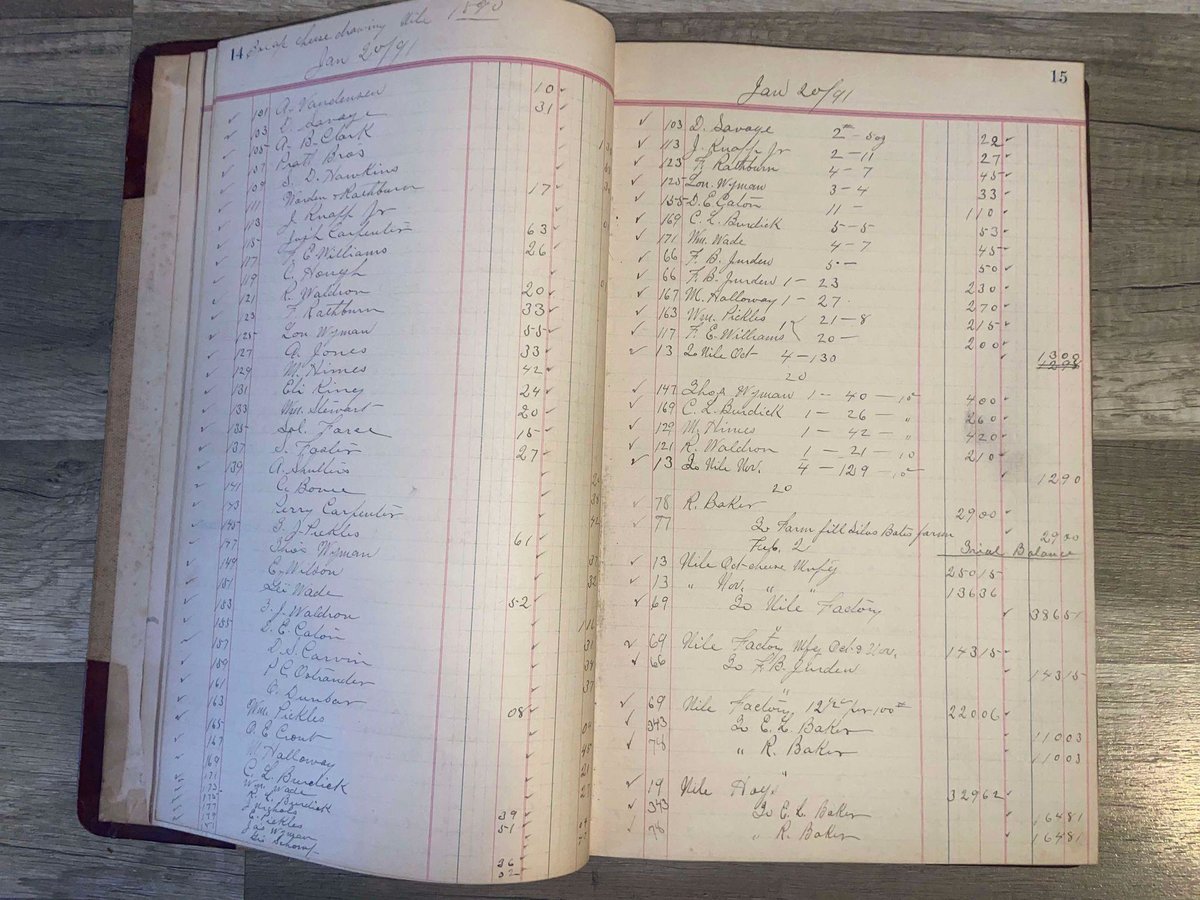 14 Swap cheese drawing Nile 1890
Jan 20/91
101 A. Vandeusen 10
103 D. Savage 31
105 A. B. Clark
107 Pratt Bros
109 S. D. Hawkins
111 Warden & Rathburn 17
113 J. Knapp Jr
115 Carpenter 63
117 F. E. Williams 26
119 C. Hough
121 R. Waldron 20
123 F. Rathburn 33
125 Lon Wyman 55
127 A. Jones 33
129 M. Himes 42
131 Eli Kiney 24
133 Wm. Stewart 20
135 Sol. Farce 15
137 S. Foster 27
139 A. Saulters
141 C. Bowe
143 Perry Carpenter
145 T. J. Pickles 61
147 Thos Wyman
149 E. Wilson
151 Geo Wade 52
153 F. J. Waldron
155 D. E. Eaton
157 D. S. Carvin
159 P. C. Ostrander
161 C. Dunbar
163 Wm. Pickles 08
165 A. E. Crout
167 M. Halloway
169 C. L. Burdick
171 Wm. Wade
173 R. L. Burdick
175 J. Nichols 39
177 E. Pickles 51
179 Jas Wyman
Geo Schoraf
26
02
15
Jan 20/91
103 D. Savage 2# - 50g 22
113 J. Knapp Jr 2 - 11 27
123 F. Rathburn 4 - 7 45
125 Lon. Wyman 3 - 4 33
155 D. E. Eaton 11 - 110
169 C. L. Burdick 5 - 5 53
171 Wm. Wade 4 - 7 45
66 F. B. Jurden 5 - 50
66 F. B. Jurden 1 - 23 230
167 M. Halloway 1 - 27 270
163 Wm. Pickles 21 - 8 215
117 F. E. Williams 20 - 200
13 To Nile Oct 4 - 130 1300
1298
20
147 Thos Wyman 1 - 40 - 10 400
169 C. L. Burdick 1 - 26 - " 260
129 M. Himes 1 - 42 - " 420
121 R. Waldron 1 - 21 - 10 210
13 To Nile Nov. 4 - 129 - 10 1290
20
78 R. Baker 2900
77 To Farm fill Silos Bates farm 2900
Feb. 2 Trial Balance
13 Nile Oct cheese Mnfg 25015
13 " Nov. " " 13636
69 To Nile Factory 38651
69 Nile Factory Mfg Oct & Nov. 14315
66 To F. B. Jurden 14315
69 Nile Factory 12½ per 100# 22006
343 To E. L. Baker 11003
78 " R. Baker 11003
19 Nile Hoys 32962
343 To E. L. Baker 16481
78 " R. Baker 16481